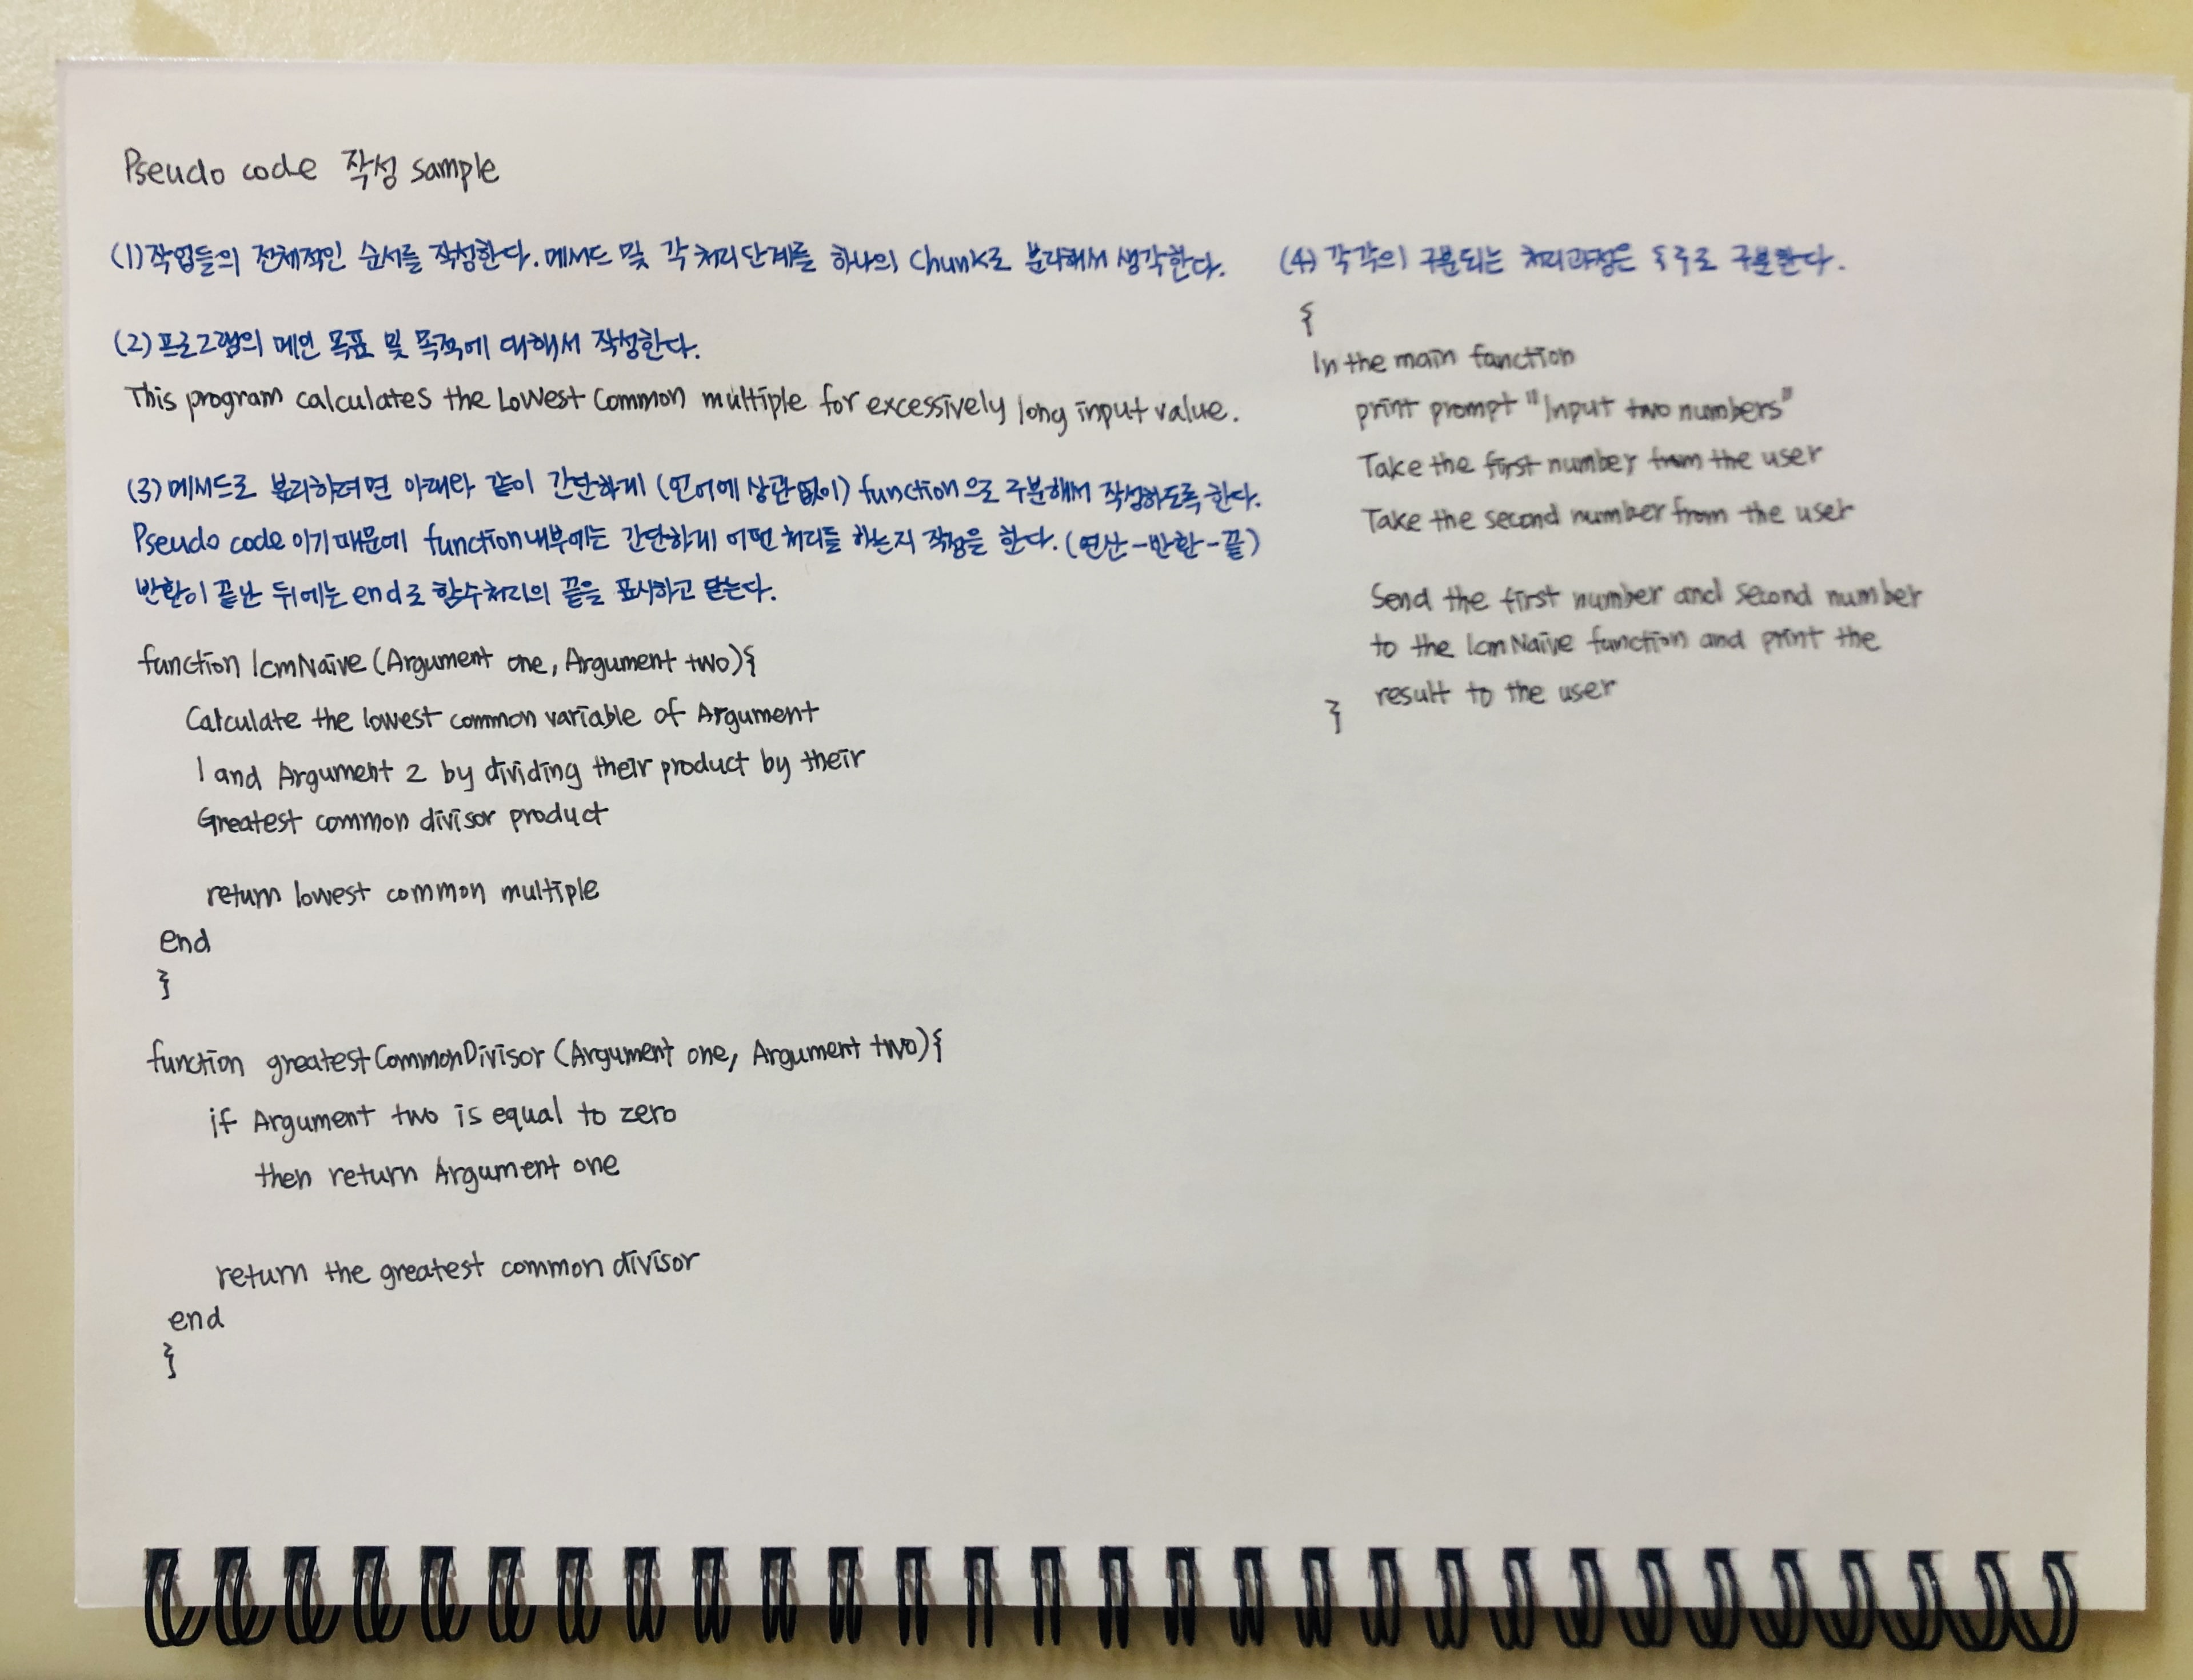 Pseudo code 작성 sample
(1) 작업들의 전체적인 순서를 작성한다. 메서드 및 각 처리단계를 하나의 Chunk로 분리해서 생각한다.
(2) 프로그램의 메인 목표 및 목적에 대해서 작성한다.
This program calculates the Lowest Common multiple for excessively long input value.
(3) 메서드로 분리하려면 아래와 같이 간단하게 (언어에 상관없이) function으로 구분해서 작성하도록 한다.
Pseudo code 이기 때문에 function 내부에는 간단하게 어떤 처리들 하는지 작성을 한다. (연산-반환-끝)
반환이 끝난 뒤에는 end로 함수처리의 끝을 표시하고 닫는다.
function lcmNaive (Argument one, Argument two){
Calculate the lowest common variable of Argument
1 and Argument 2 by dividing their product by their
Greatest common divisor product
return lowest common multiple
end
}
function greatestCommonDivisor (Argument one, Argument two){
if Argument two is equal to zero
then return Argument one
return the greatest common divisor
end
}
(4) 각각의 구분되는 처리과정은 { }로 구분한다.
{
In the main fanction
print prompt "Input two numbers"
Take the first number from the user
Take the second number from the user
Send the first number and second number
to the lcmNaive function and print the
result to the user
}